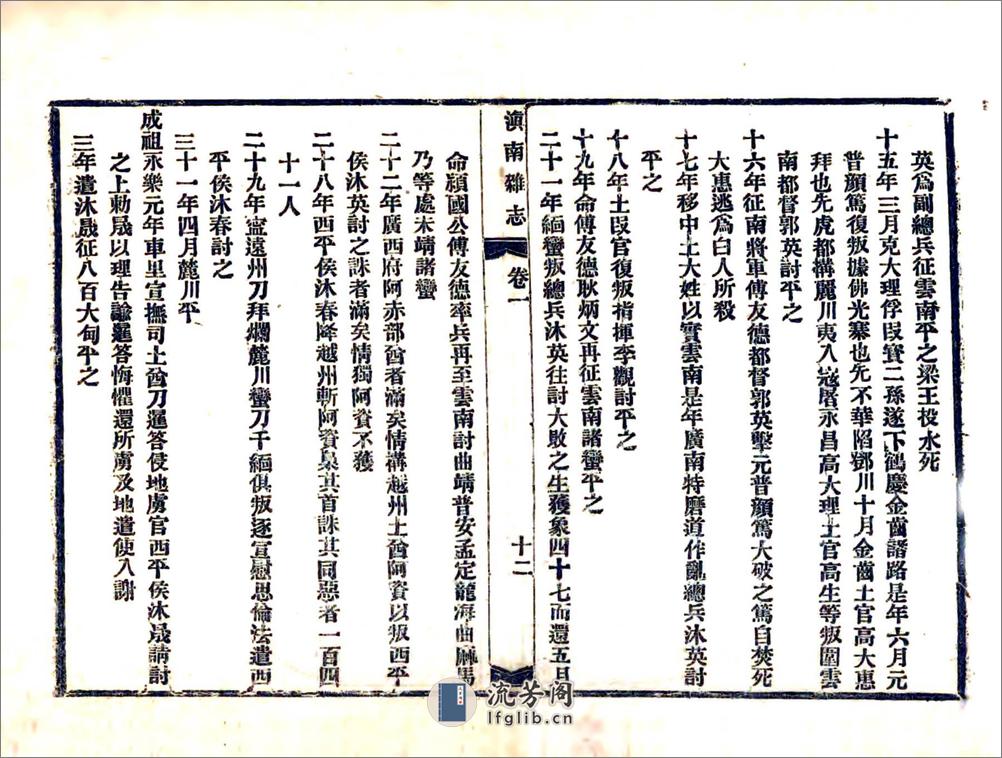 英爲副總兵征雲南平之梁王投水死
十五年三月克大理俘段寶二孫遂下鶴慶金齒諸路是年六月元
普顏篤復叛據佛光寨也先不華陷鄧川十月金齒土官高大惠
拜也先虎都搆麗川夷入寇屠永昌高大理土官高生等叛圍雲
南都督郭英討平之
十六年征南將軍傅友德都督郭英擊元普顏篤大破之篤自焚死
大惠逃爲白人所殺
十七年移中土大姓以實雲南是年廣南特磨道作亂總兵沐英討
平之
十八年土段官復叛指揮李觀討平之
十九年命傅友德耿炳文再征雲南諸蠻平之
二十一年緬蠻叛總兵沐英往討大敗之生獲象四十七而還五月
滇南雜志
卷一
十二
命潁國公傅友德率兵再至雲南討曲靖普安孟定龍海曲麻馬
乃等處未靖諸蠻
二十二年廣西府阿赤部酋者滿矣情搆越州土酋阿資以叛西平
侯沐英討之誅者滿矣情獨阿資不獲
二十八年西平侯沐春降越州斬阿資梟其首誅其同惡者一百四
十一人
二十九年寧遠州刀拜爛麓川蠻刀干緬俱叛逐宣慰思倫法遣西
平侯沐春討之
三十一年四月麓川平
成祖永樂元年車里宣撫司土酋刀暹答侵地虜官西平侯沐晟請討
之上勅晟以理告諭暹答悔懼還所虜及地遣使入謝
三年遣沐晟征八百大甸平之
流芳阁
lfglib.cn